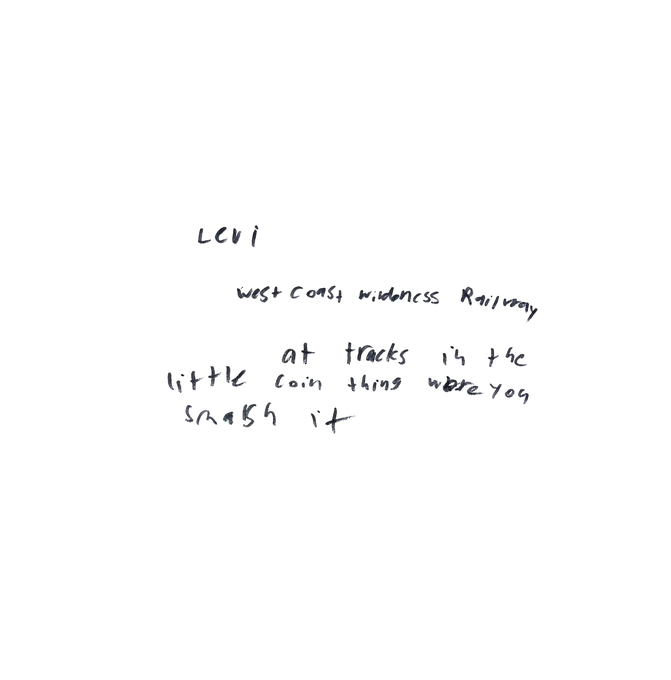 Levi
west coast wildness Railway
at tracks in the
little coin thing were you
smash it